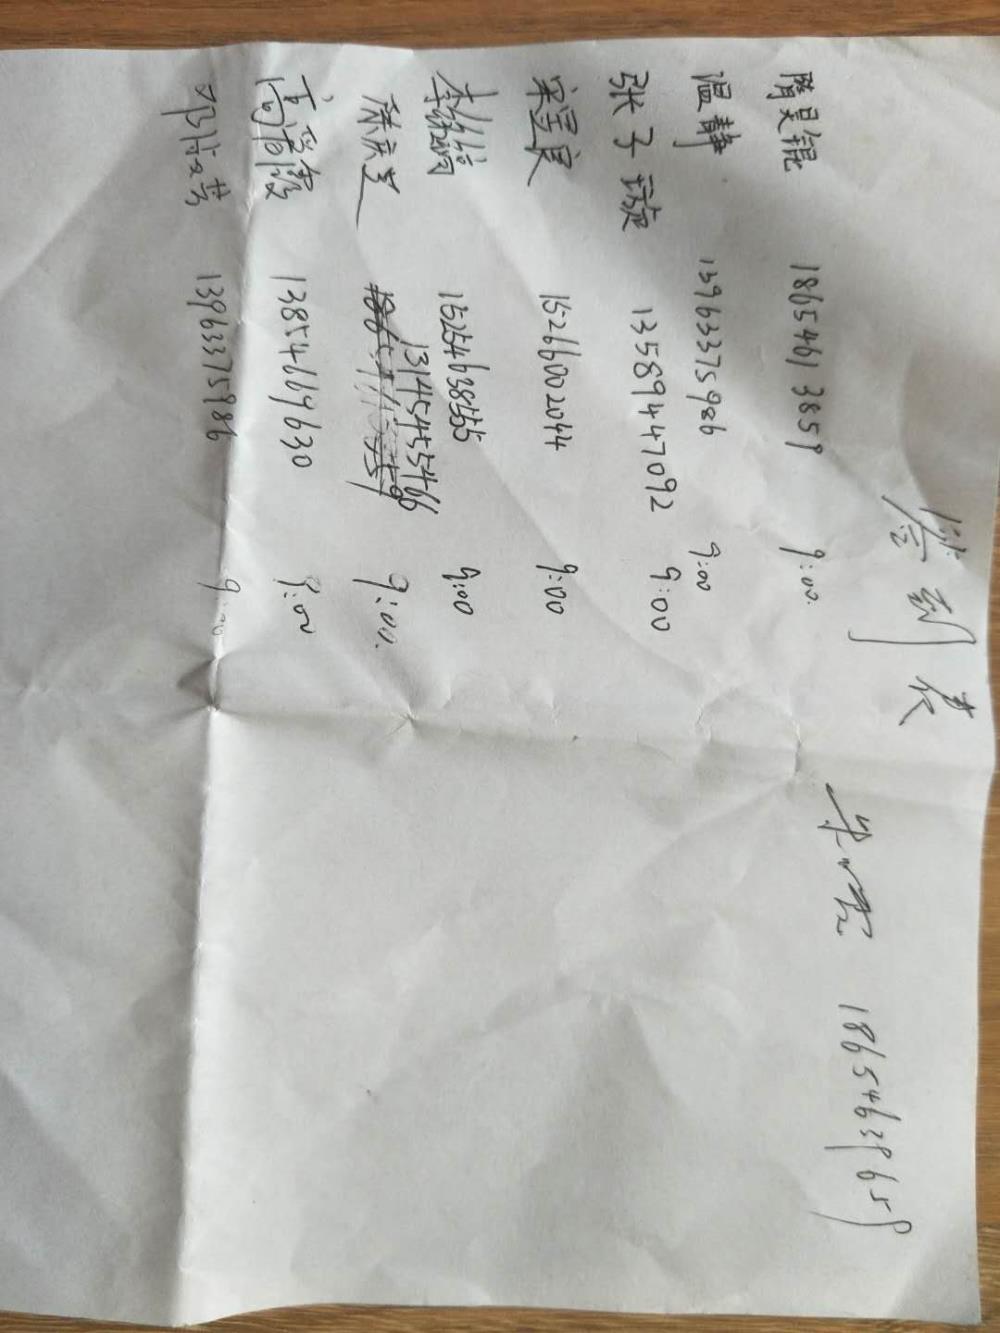 签到表
18654639659
簡昊锟 18654613859 9:00.
温静 13963375986 9:00
张子璇 13589447092 9:00
宋呈良 15266002044 9:00
15254638555 9:00
13145455466 9:00.
高霞 13854669630 9:00
13963375986 9:00